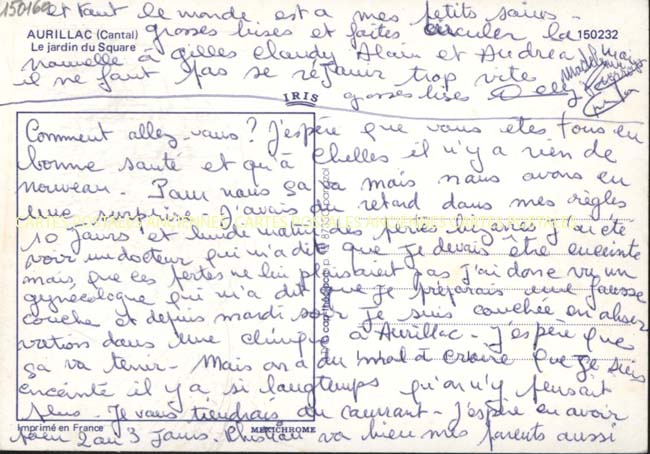 150160
et tout le monde est a mes petits soins.
AURILLAC (Cantal)
Le jardin du Square
150232
grosses bises et faites circuler la
nouvelle à gilles Claudy Alain et Andréa
mais
il ne faut pas se réjouir trop vite
grosses bises
IRIS
Comment allez vous ? J'espère que vous êtes tous en
bonne santé et qu'à Chelles il n'y a rien de
nouveau - Pour nous ça va mais nous avons eu
une surprise. J'avais du retard dans mes règles
10 jours et lundi matin des pertes bizarres j'ai été
voir un docteur qui m'a dit que je devais être enceinte
mais que ces pertes ne lui plaisaient pas j'ai donc vu un
gynécologue qui m'a dit que je préparais une fausse
couche et depuis mardi soir je suis couchée en obser
vation dans une clinique à Aurillac - J'espère que
ça va tenir - Mais on a du mal à croire que je suis
enceinte il y a si longtemps qu'on n'y pensait
plus - Je vous tiendrais au courant - j'espère en avoir
pour 2 ou 3 jours. Christian va bien mes parents aussi
Imprimé en France
MEXICHROME